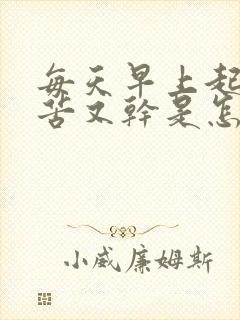 每天早上起
苦又幹是怎
小威廉姆斯